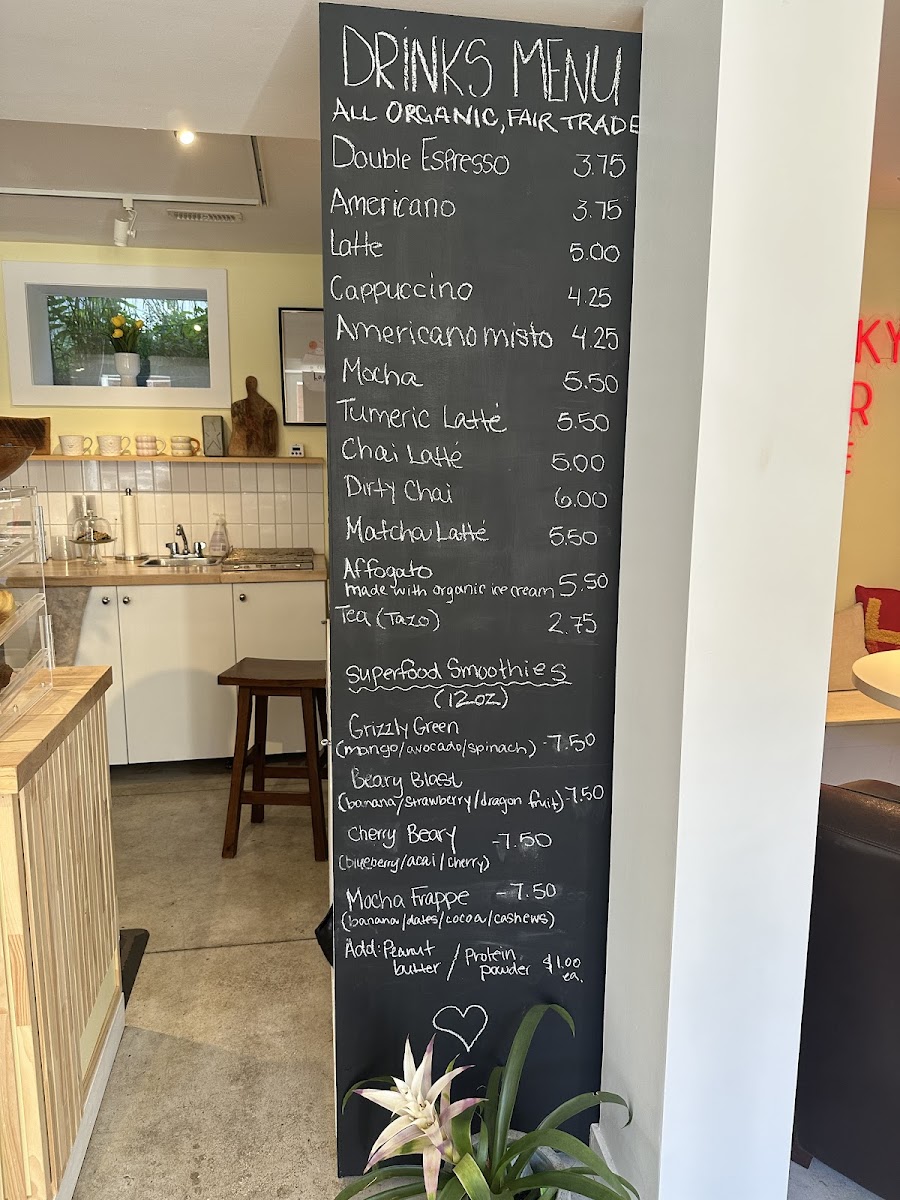 DRINKS MENU
ALL ORGANIC, FAIR TRADE
Double Espresso 3.75
Americano 3.75
Latte 5.00
Cappuccino 4.25
Americano misto 4.25
Mocha 5.50
Tumeric Latté 5.50
Chai Latté 5.00
Dirty Chai 6.00
Matcha Latté 5.50
Affogato
made with organic ice cream 5.50
Tea (Tazo) 2.75
Superfood Smoothies
(12oz)
Grizzly Green
(mango/avocado/spinach) -7.50
Beary Blast
(banana/strawberry/dragon fruit) -7.50
Cherry Beary -7.50
(blueberry/acai/cherry)
Mocha Frappe -7.50
(banana/dates/cocoa/cashews)
Add: Peanut
butter / Protein
powder $1.00
ea.
KY
R